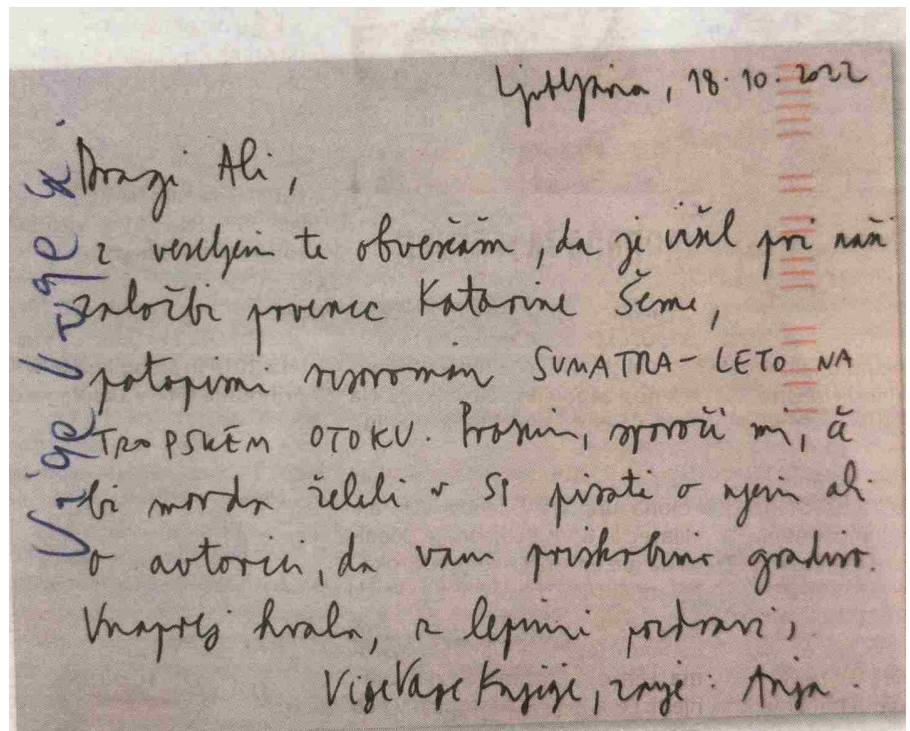 Ljubljana, 18.10.2022
Dragi Ali,
z veseljem te obveščam, da je izšel pri naši
založbi prvenec Katarine Šeme,
potopisni risoroman SUMATRA - LETO NA
TROPSKEM OTOKU. Prosim, sporoči mi, če
bi morda želeli v SP pisati o njem ali
o avtorici, da vam priskrbimo gradivo.
Vnaprej hvala, z lepimi pozdravi,
VigeVageKnjige, zanje: Anja.
Vige Vage k.